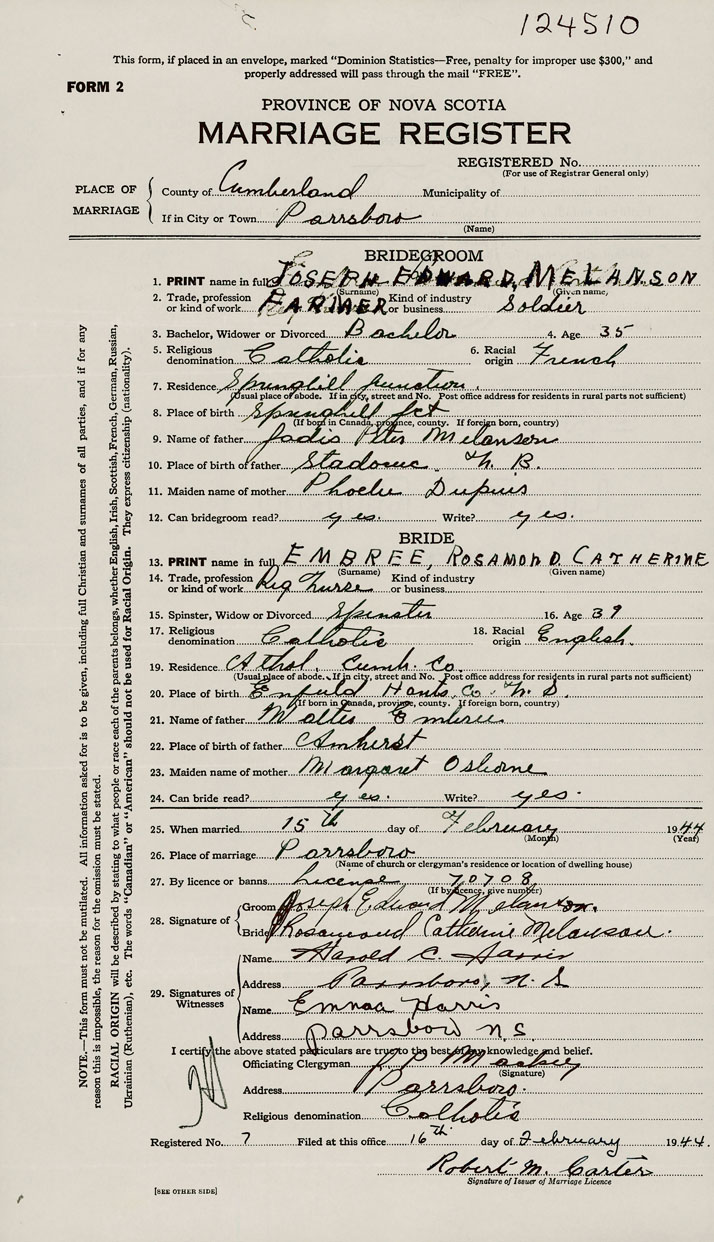 124510
This form, if placed in an envelope, marked "Dominion Statistics—Free, penalty for improper use $300," and
properly addressed will pass through the mail "FREE".
FORM 2
PROVINCE OF NOVA SCOTIA
MARRIAGE REGISTER
REGISTERED No.
(For use of Registrar General only)
PLACE OF MARRIAGE
County of Cumberland Municipality of
If in City or Town Parrsboro
(Name)
BRIDEGROOM
1. PRINT name in full JOSEPH EDWARD, MELANSON
(Surname) (Given name)
2. Trade, profession or kind of work FARMER Kind of industry or business Soldier
3. Bachelor, Widower or Divorced Bachelor 4. Age 35
5. Religious denomination Catholic 6. Racial origin French
7. Residence Springhill Junction.
(Usual place of abode. If in city, street and No. Post office address for residents in rural parts not sufficient)
8. Place of birth Springhill Jct
(If born in Canada, province, county. If foreign born, country)
9. Name of father Peter Melanson
10. Place of birth of father N. B.
11. Maiden name of mother Phoebe Dupuis
12. Can bridegroom read? yes. Write? yes.
BRIDE
13. PRINT name in full EMBREE, ROSAMOND CATHERINE
(Surname) (Given name)
14. Trade, profession or kind of work Reg Nurse Kind of industry or business
15. Spinster, Widow or Divorced Spinster 16. Age 39
17. Religious denomination Catholic 18. Racial origin English.
19. Residence Athol, Cumb. Co.
(Usual place of abode. If in city, street and No. Post office address for residents in rural parts not sufficient)
20. Place of birth Enfield Hants Co. N. S.
(If born in Canada, province, county. If foreign born, country)
21. Name of father Embree
22. Place of birth of father Amherst
23. Maiden name of mother Margaret Osborne
24. Can bride read? yes. Write? yes.
25. When married 15th day of February 1944
(Month) (Year)
26. Place of marriage Parrsboro
(Name of church or clergyman's residence or location of dwelling house)
27. By licence or banns License 70708
(If by licence, give number)
28. Signature of
Groom Joseph Edward Melanson.
Bride Rosamond Catherine Melanson.
29. Signatures of Witnesses
Name Harold C. Harris
Address Parrsboro, N. S
Name Emma Harris
Address Parrsboro N S
I certify the above stated particulars are true to the best of my knowledge and belief.
Officiating Clergyman J P Mackey
(Signature)
Address Parrsboro.
Religious denomination Catholic
Registered No. 7 Filed at this office 16th day of February 1944.
Robert M. Carter
Signature of Issuer of Marriage Licence
[SEE OTHER SIDE]
NOTE.—This form must not be mutilated. All information asked for is to be given, including full Christian and surnames of all parties, and if for any
reason this is impossible, the reason for the omission must be stated.
RACIAL ORIGIN will be described by stating to what people or race each of the parents belongs, whether English, Irish, Scottish, French, German, Russian,
Ukrainian (Ruthenian), etc. The words "Canadian" or "American" should not be used for Racial Origin. They express citizenship (nationality).